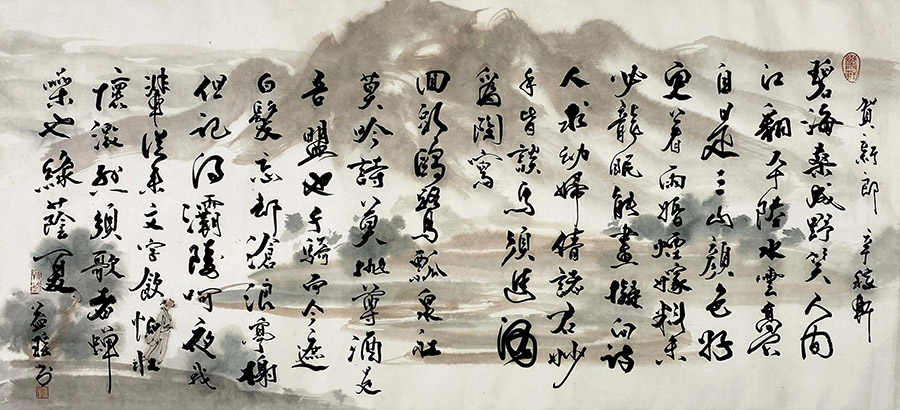 賀新郎 辛稼軒
碧海桑成野笑人间
江翻平陸水雲高下
自是三山顏色好
更着雨婚煙嫁料未
必龍眠能畫擬向詩
人求幼婦倩諸君妙
手皆談馬須進酒
為陶寫
回頭鷗鷺瓢泉社
莫吟詩莫拋尊酒是
吾盟也千騎而今遮
白髮忘却滄浪亭榭
但記得灞陵呵夜我
輩從來文字飲怕壯
懷激烈須歌者蟬
噪也綠蔭夏